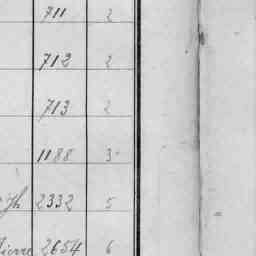 711 2
712 2
713 2
1188 3
2332 5
Pierre 2654 6